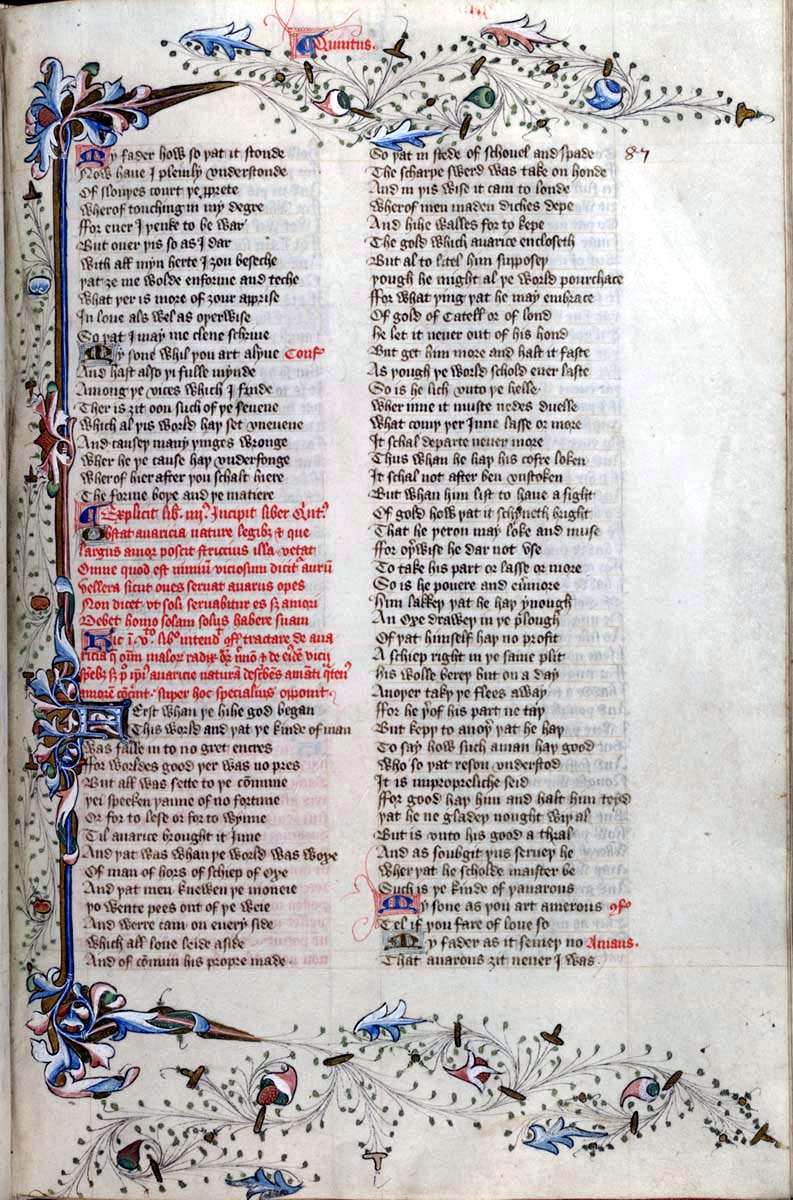 Quintus.
87
My fader how so þat it stonde
Now haue I pleinly vnderstonde
Of slouþes court þe pprete
Wherof touching in my degre
ffor euer I þenke to be war
But ouer þis so as I dar
With all myn herte I ȝou beseche
þat ȝe me wolde enforme and teche
What þer is more of ȝour apprise
In loue als wel as oþerwise
So þat I may me clene schriue
My sone whil þou art alyue Conf
And hast also þi fulle mynde
Among þe vices which I finde
Ther is ȝit oon such of þe seuene
Which al þis world haþ set vneuene
And causeþ many þinges wronge
Wher he þe cause haþ vnderfonge
Wherof hier after þou schalt hiere
The forme boþe and þe matiere
Explicit lib. iiij. Incipit liber Quit
Obstat auaricia nature legibz & que
largus amor poscit striccius illa vetat
Omne quod est nimium viciosum dicit aurum
Vellera sicut oues seruat auarus opes
Non dicet vt soli seruabitur es sz amori
Debet homo solam solus habere suam
Hic i v libo intend tractare de aua
ricia q oim malor radix
amorem super hoc specialius opponit.
Ferst whan þe hihe god began
This world and þat þe kinde of man
Was falle in to no gret encres
ffor worldes good þer was no pres
But all was sette to þe comune
þei speeken þanne of no fortune
Or for to lese or for to wynne
Til auarice brought it Inne
And þat was whan þe world was woxe
Of man of hors of schiep of oxe
And þat men knewen þe moneie
þo wente pees out of þe weie
And werre cam on euery side
Which all loue leide aside
And of comun his propre made.
So þat in stede of schouel and spade
The scharpe swerd was take on honde
And in þis wise it cam to londe
Wherof men maden diches depe
And hihe walles for to kepe
The gold which auarice encloseth
But al to litel him supposeþ
þough he might al þe world pourchace
ffor what þing þat he may embrace
Of gold of Catell or of lond
he let it neuer out of his hond
But get him more and halt it faste
As þough þe world schold euer laste
So is he lich vnto þe helle
Wher inne it muste nedes duelle
What comþ þer Inne lasse or more
It schal departe neuer more
Thus whan he haþ his cofre loken
It schal not after ben vnstoken
But whan him list to haue a sight
Of gold how þat it schyneth bright
That he þeron may loke and muse
ffor oþwise he dar not vse
To take his part or lasse or more
So is he pouere and euermore
him lakkeþ þat he haþ ynough
An Oxe draweþ in þe plough
Of þat himself haþ no profit
A schiep right in þe same plit
his wolle bereþ but on a day
Anoþer takþ þe flees away
ffor he þof his part ne taþ
But kepþ to anoþ þat he haþ
To say how such a man haþ good
Who so þat reson vnderstod
It is impropreliche seid
ffor good haþ him and halt him teyd
þat he ne gladeþ nought wiþ al
But is vnto his good a thral
And as soubgit þus serueþ he
Wher þat he scholde maister be
Such is þe kinde of þauarous
My sone as þou art amerous
Tel if þou fare of loue so
My fader as it semeþ no Amans.
That auarous ȝit neuer I was.